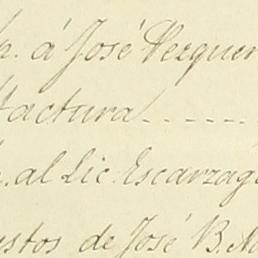 á José Verguer
factura......
al Lic. Escarzag
stos de José B. No